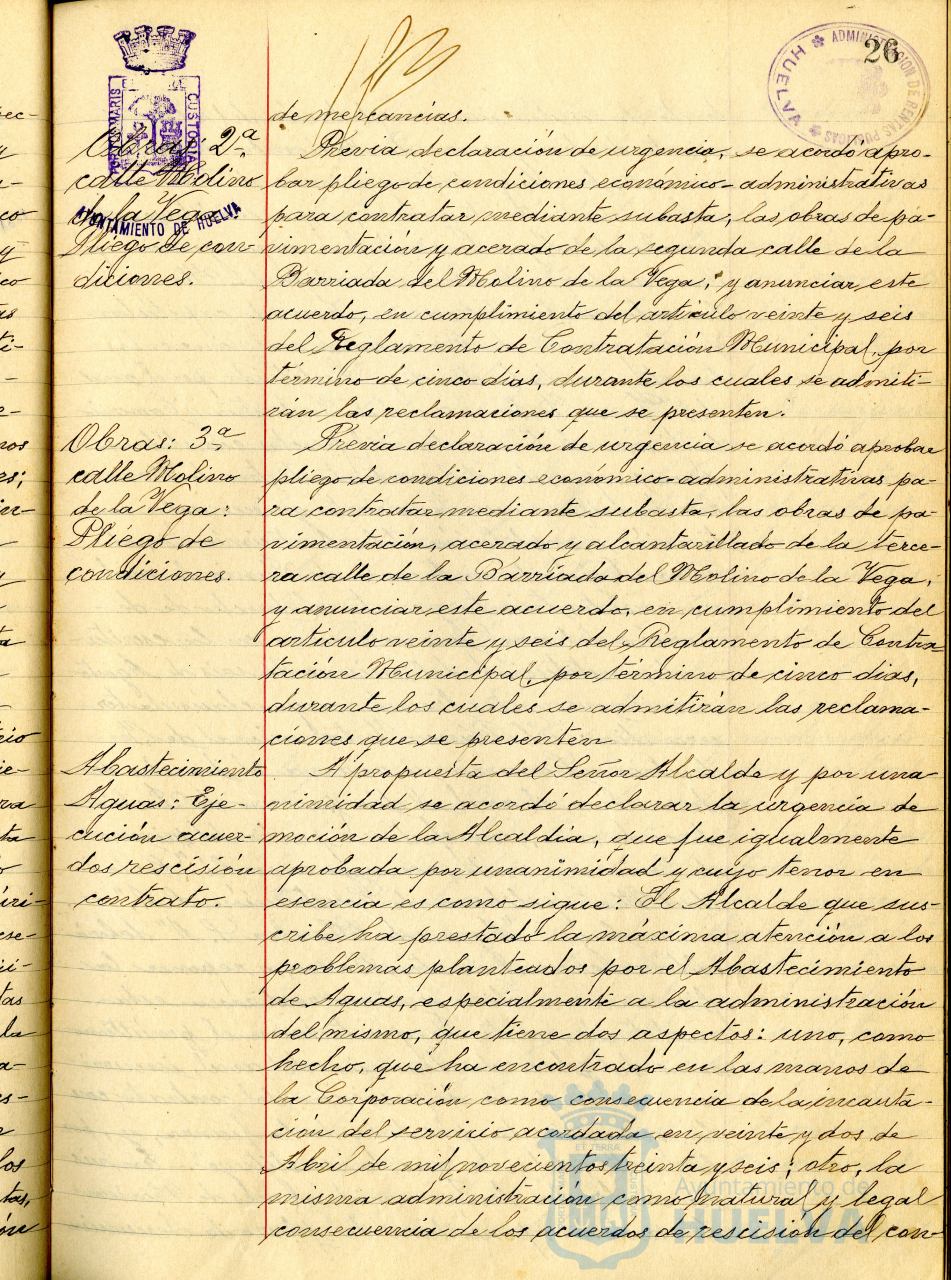 26
ADMINISTRACION DE RENTAS PUBLICAS
HUELVA
PORTUS MARIS ET TERRAE CUSTODIA
AYUNTAMIENTO DE HUELVA
de mercancías.
Obras: 2ª
calle Molino
de la Vega
Pliego de con-
diciones.
Previa declaración de urgencia, se acordó apro-
bar pliego de condiciones económico-administrativas
para contratar mediante subasta, las obras de pa-
vimentación y acerado de la segunda calle de la
Barriada del Molino de la Vega; y anunciar este
acuerdo, en cumplimiento del artículo veinte y seis
del Reglamento de Contratación Municipal, por
término de cinco días, durante los cuales se admiti-
rán las reclamaciones que se presenten.
Obras: 3ª
calle Molino
de la Vega:
Pliégo de
condiciones.
Previa declaración de urgencia se acordó aprobar
pliego de condiciones económico-administrativas pa-
ra contratar mediante subasta, las obras de pa-
vimentación, acerado y alcantarillado de la terce-
ra calle de la Barriada del Molino de la Vega;
y anunciar este acuerdo, en cumplimiento del
artículo veinte y seis del Reglamento de Contra-
tación Municipal, por término de cinco dias,
durante los cuales se admitirán las reclama-
ciones que se presenten
Abastecimiento
Aguas: Eje-
cución acuer-
dos rescisión
contrato.
A propuesta del Señor Alcalde y por una-
nimidad se acordó declarar la urgencia de
moción de la Alcaldía, que fue igualmente
aprobada por unanimidad y cuyo tenor en
esencia es como sigue: El Alcalde que sus-
cribe ha prestado la máxima atención a los
problemas planteados por el Abastecimiento
de Aguas, especialmente a la administración
del mismo, que tiene dos aspectos: uno, como
hecho, que ha encontrado en las manos de
la Corporación como consecuencia de la incauta-
ción del servicio acordada en veinte y dos de
Abril de mil novecientos treinta y seis; otro, la
misma administración como natural y legal
consecuencia de los acuerdos de rescisión del con-
Ayuntamiento de
HUELVA